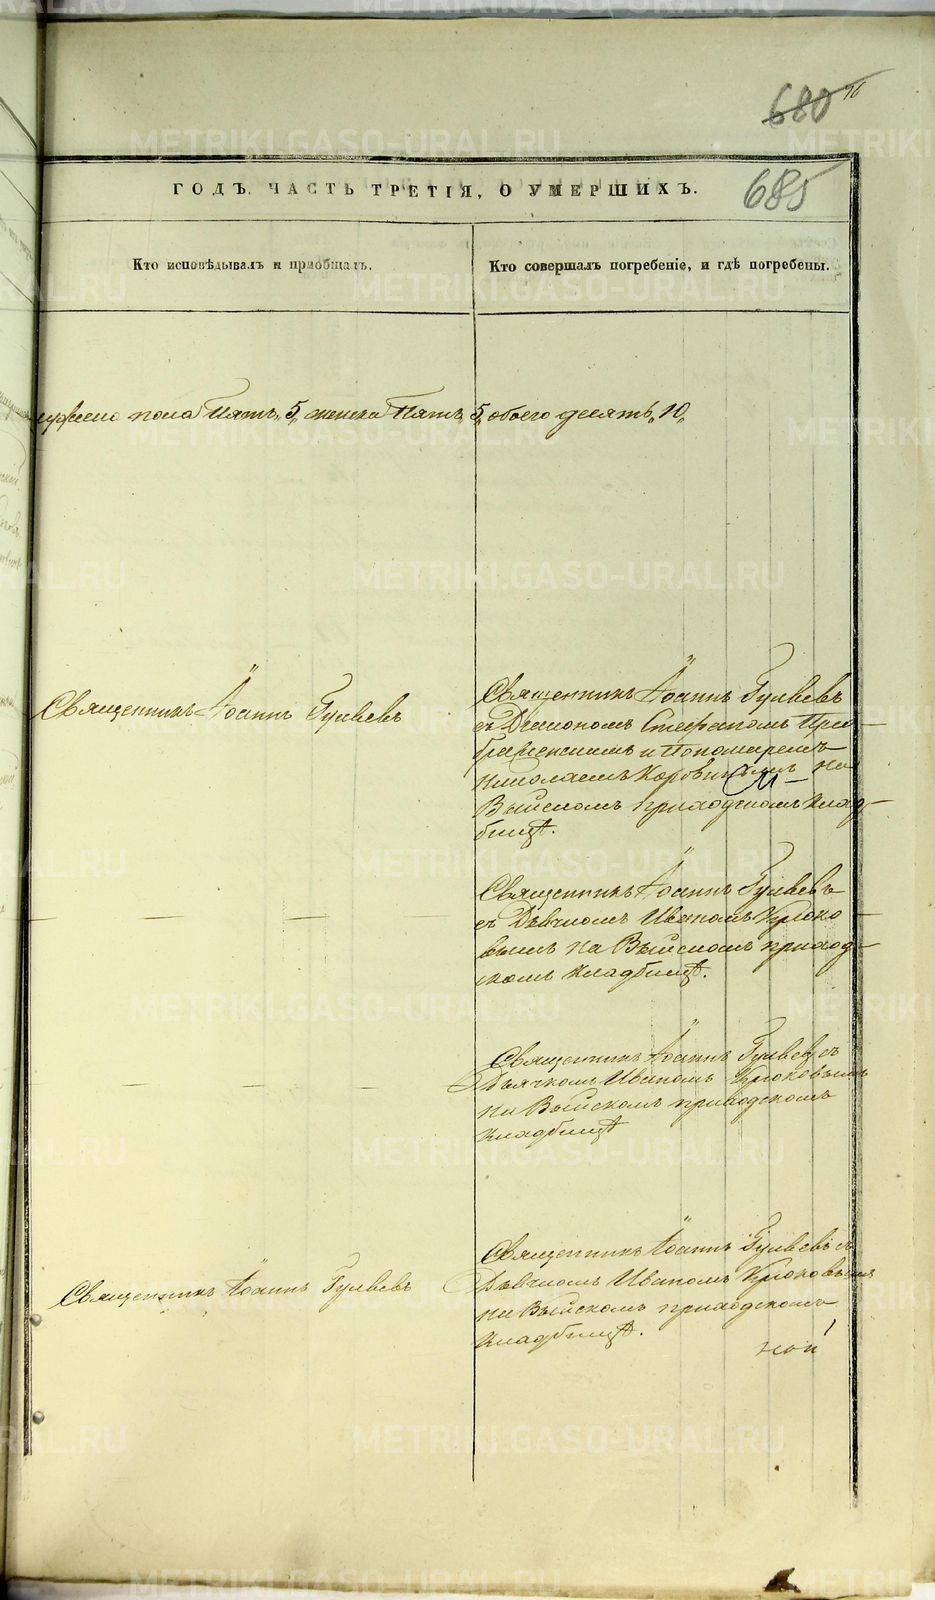 680 76
685
ГОДЪ. ЧАСТЬ ТРЕТІЯ, О УМЕРШИХЪ.
Кто исповѣдывалъ и пріобщалъ.
Кто совершалъ погребеніе, и гдѣ погребены.
пола Пять „5„ женска Пять „5„ обоего десять „10„
Священникъ Іоаннъ Гуляевъ
Священникъ Іоаннъ Гуляевъ
съ Діакономъ Стефаномъ Прео-
браженскимъ и Пономаремъ
Николаемъ на
Выйскомъ приходскомъ клад-
бищѣ.
Священникъ Іоаннъ Гуляевъ
съ Дьячкомъ Иваномъ Крюко-
вымъ на Выйскомъ приход-
скомъ кладбищѣ.
Священникъ Іоаннъ Гуляевъ съ
Дьячкомъ Иваномъ Крюковымъ
на Выйскомъ приходскомъ
кладбищѣ
Священникъ Іоаннъ Гуляевъ
Священникъ Іоаннъ Гуляевъ съ
Дьячкомъ Иваномъ Крюковымъ
на Выйскомъ приходскомъ
кладбищѣ.
ной
METRIKI.GASO-URAL.RU